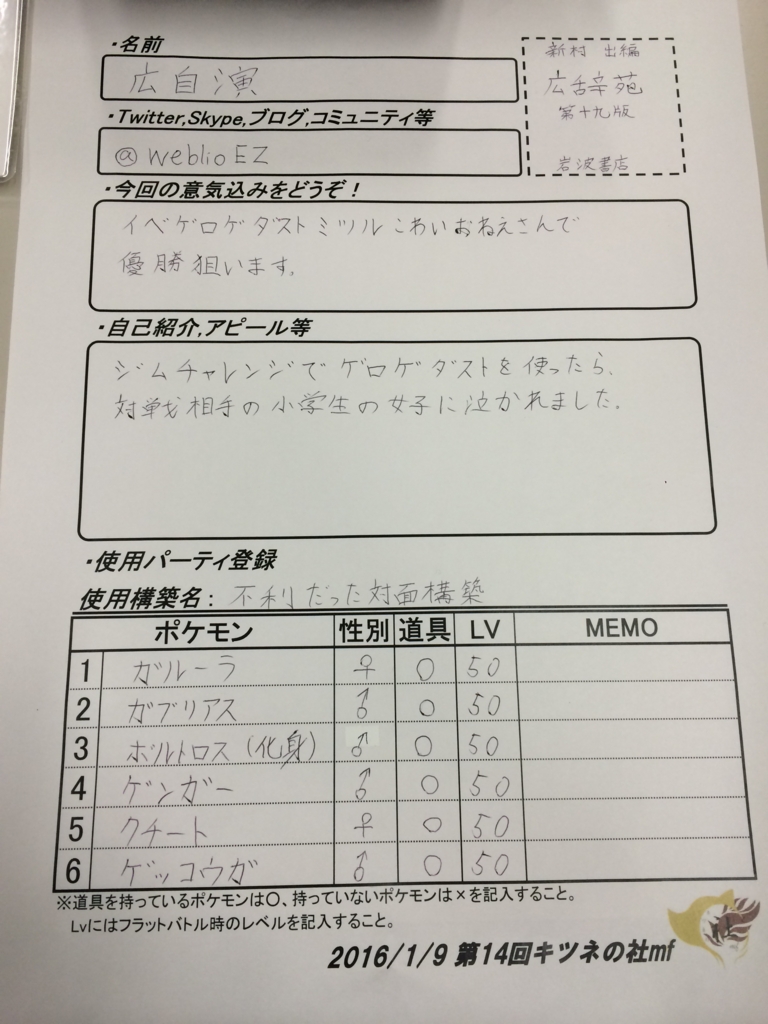 ・名前
広自演
新村 出編
広辞苑
第十九版
岩波書店
・Twitter,Skype,ブログ,コミュニティ等
@weblioEZ
・今回の意気込みをどうぞ！
イベゲロゲダストミツルこわいおねえさんで
優勝狙います。
・自己紹介,アピール等
ジムチャレンジでゲロゲダストを使ったら、
対戦相手の小学生の女子に泣かれました。
・使用パーティ登録
使用構築名：不利だった対面構築
ポケモン 性別 道具 LV MEMO
1 ガルーラ ♀ ○ 50
2 ガブリアス ♂ ○ 50
3 ボルトロス(化身) ♂ ○ 50
4 ゲンガー ♂ ○ 50
5 クチート ♀ ○ 50
6 ゲッコウガ ♂ ○ 50
※道具を持っているポケモンは〇、持っていないポケモンは×を記入すること。
Lvにはフラットバトル時のレベルを記入すること。
2016/1/9 第14回キツネの社mf